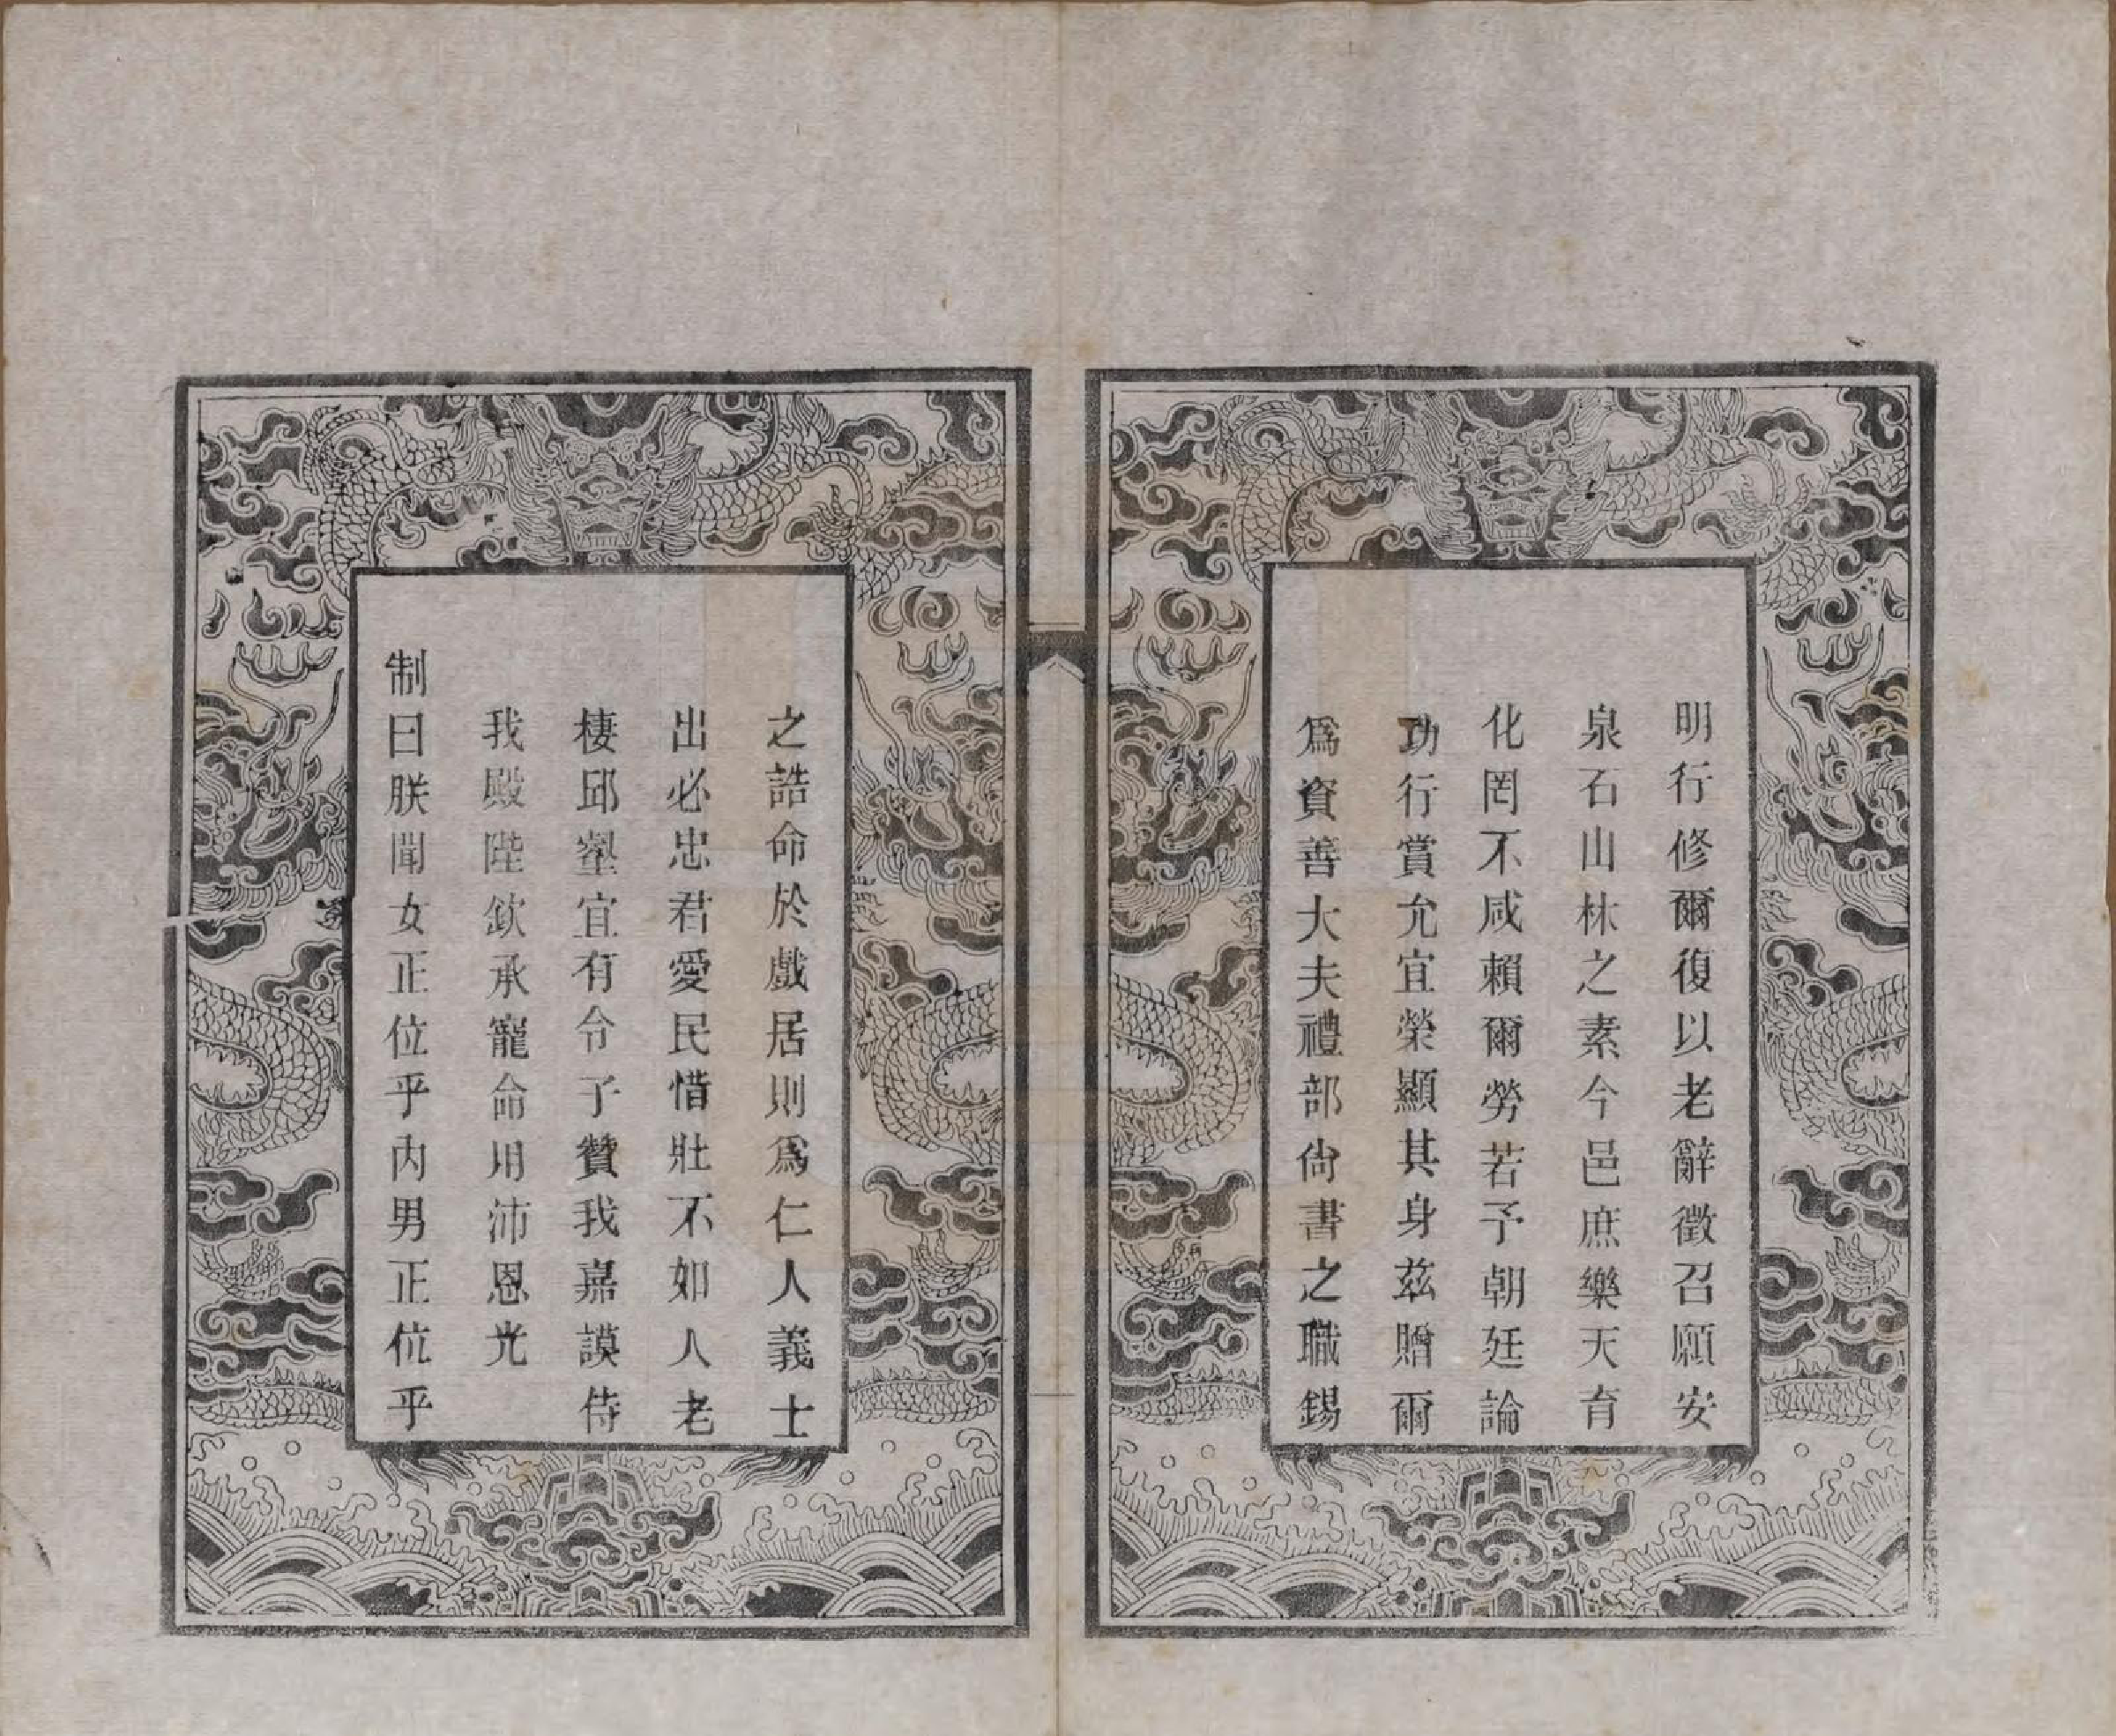 明行修爾復以老辭徵召願安
泉石山林之素今邑庶樂天育
化罔不咸賴爾勞若予朝廷論
功行賞允宜榮顯其身茲贈爾
爲資善大夫禮部尙書之職錫
之誥命於戲居則爲仁人義士
出必忠君愛民惜壯不如人老
棲邱壑宜有令子贊我嘉謨侍
我殿陛欽承寵命用沛恩光
制曰朕聞女正位乎內男正位乎